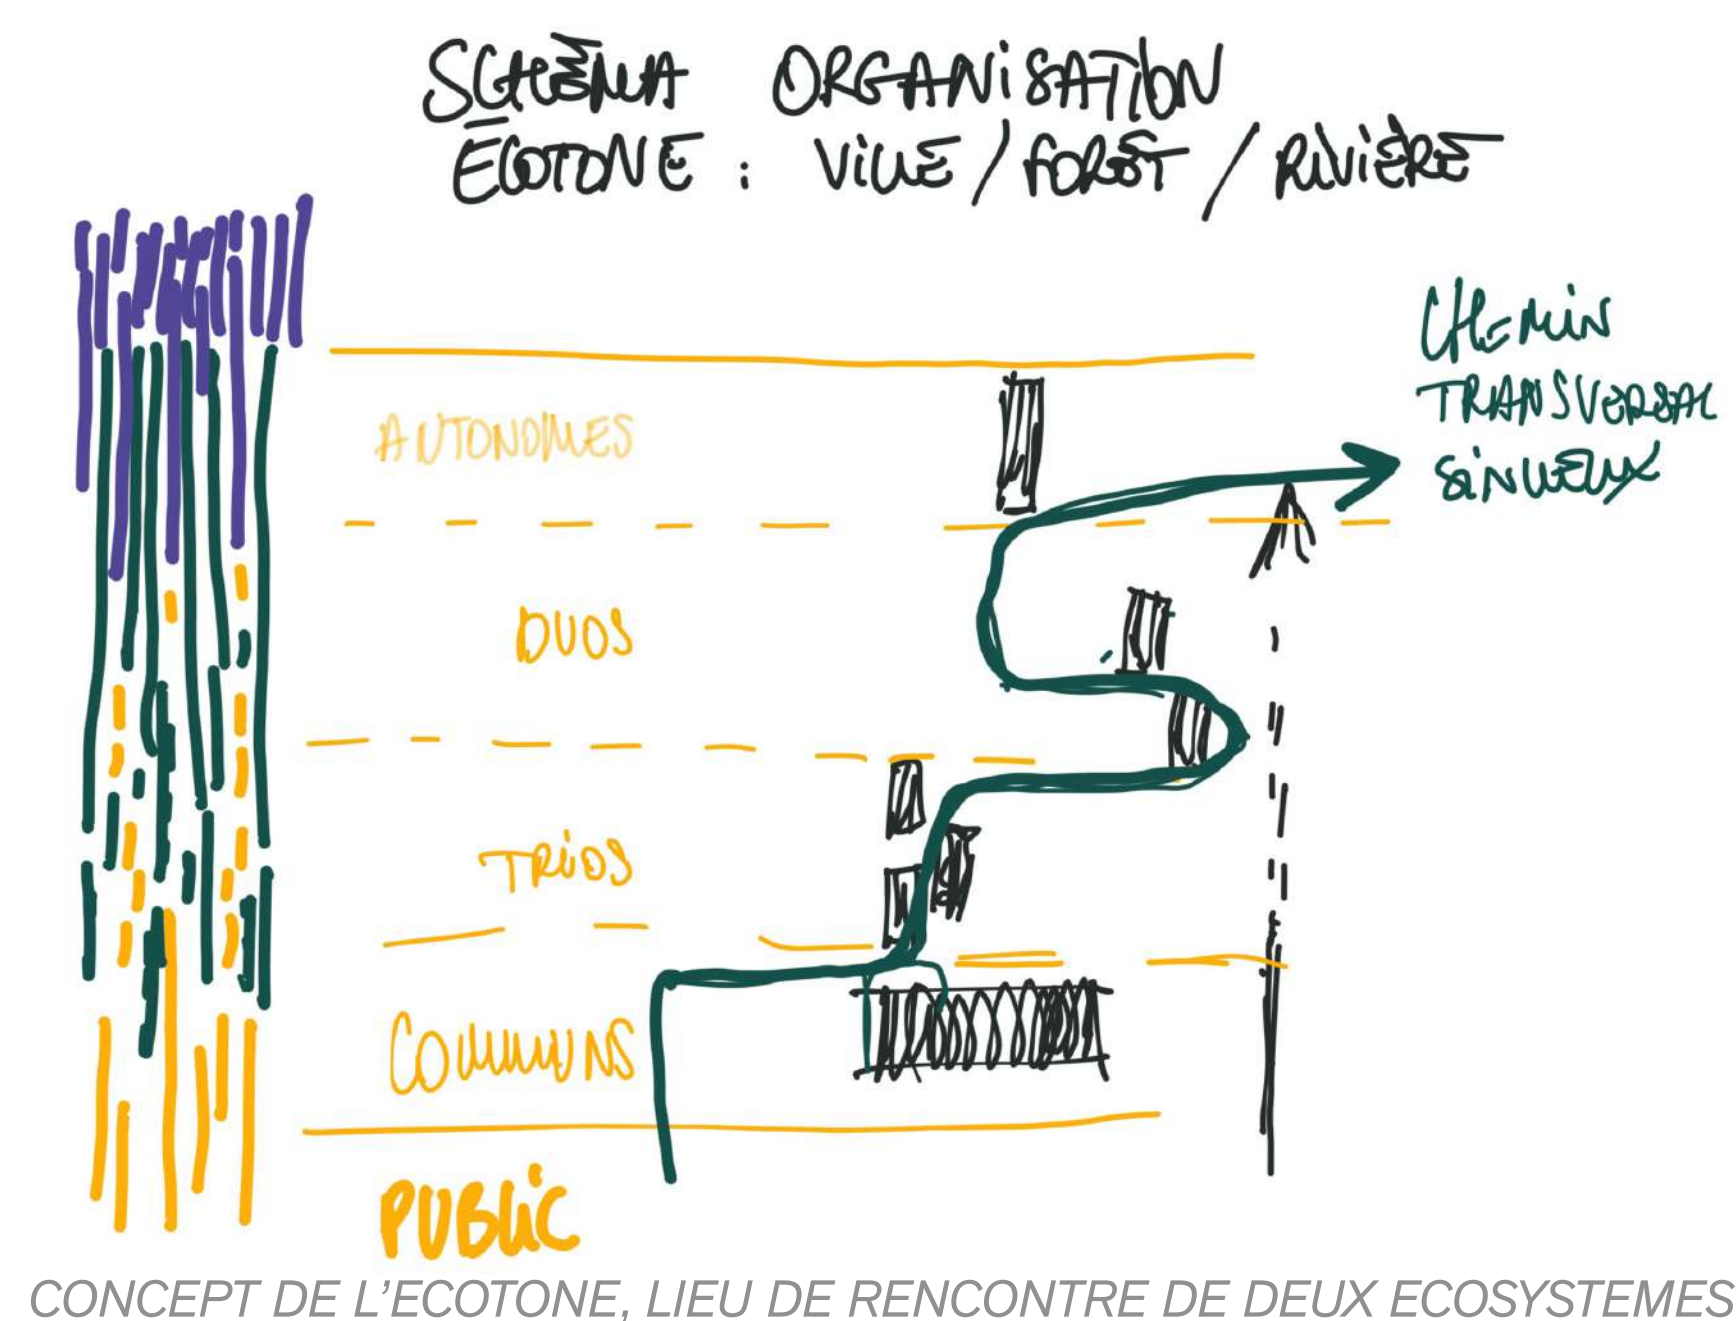 SCHÉMA ORGANISATION
ÉCOTONE : VILLE / FORÊT / RIVIÈRE
CHEMIN
TRANSVERSAL
SINUEUX
AUTONOMES
DUOS
TRIOS
COMMUNS
PUBLIC
CONCEPT DE L'ECOTONE, LIEU DE RENCONTRE DE DEUX ECOSYSTEMES